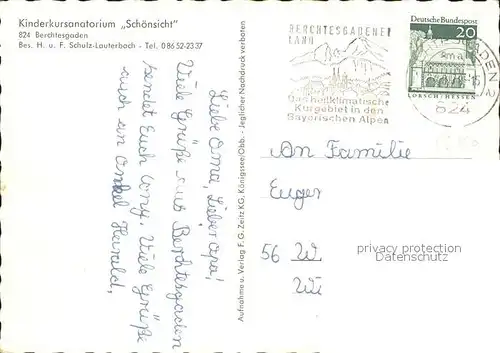 Kinderkursanatorium „Schönsicht"
824 Berchtesgaden
Bes. H. u. F. Schulz-Lauterbach - Tel. 08652-2337
Liebe Oma, Lieber Opa!
Viele Grüße aus Berchtesgaden
sendet Euch Conny. Viele Grüße
auch an Onkel Harald.
Aufnahme u. Verlag F. G. Zeitz KG, Königssee/Obb. - Jeglicher Nachdruck verboten
BERCHTESGADENER
LAND
Das heilklimatische
Kurgebiet in den
Bayerischen Alpen
Deutsche Bundespost
20
LORSCH/HESSEN
824
An Familie
Euger
56 W
Wu
privacy protection
Datenschutz